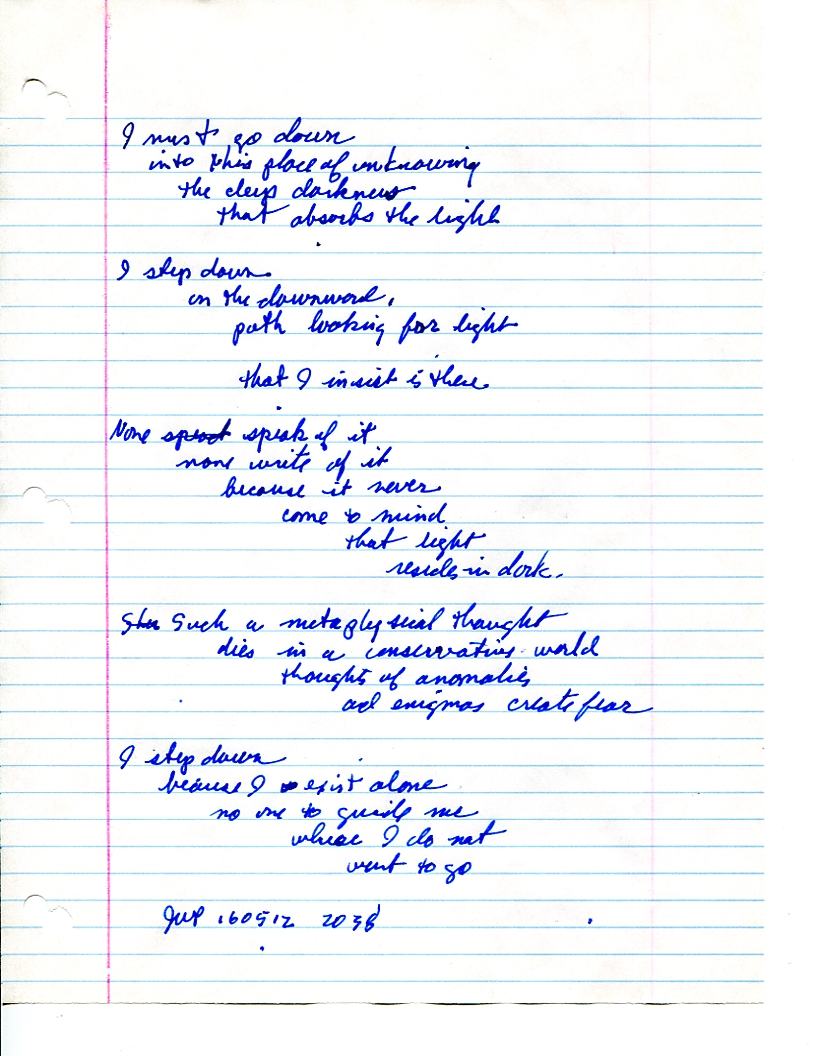 I must go down
into this place of unknowing
the deep darkness
that absorbs the light
I step down
on the downward,
path looking for light
that I insist is there.
None speak of it
none write of it
because it never
come to mind
that light
resides in dark.
Such a metaphysical thought
dies in a conservative world
thoughts of anomalies
ad enigmas create fear
I step down
because I exist alone
no one to guide me
where I do not
want to go
160512 2038